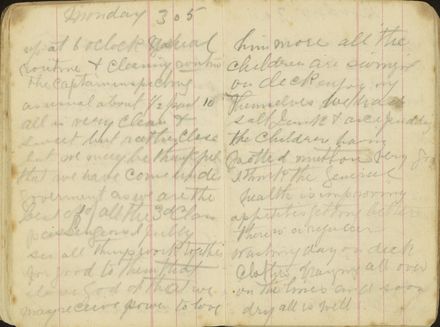 Monday 305
up at 6 oclock Usual
routine & cleaning
The Captain inspecting
as usual about 1/2 past 10
all is very clean &
sweet but rather close
but we must be thankful
that we have come under
goverment as we are the
best off of all the 3d Class
passengers I fully
see all things work together
for good to them that
love God o that we
may receive power to love
him more all the
children are swinging
on deck enjoying
themselves we had
salt Junk &
the children having
mutton very
I think the General
health is improving
appetites getting better
There is a regular
washing day on deck
Clothes hanging all over
on the lines and soon
dry all is well